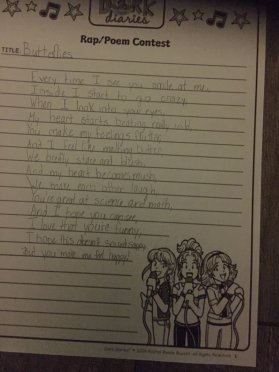 DORK
diaries
Rap/Poem Contest
TITLE: Butterflies
Every time I see you smile at me,
Inside I start to go crazy,
When I look into your eyes,
My heart starts beating really wild,
You make my feelings flutter,
And I feel like melting butter
We briefly stare and blush,
And my heart becomes mush,
We make each other laugh,
You're great at science and math,
And I hope you can see,
I love that you're funny,
I hope this doesn't sound sappy,
But you make me feel happy!